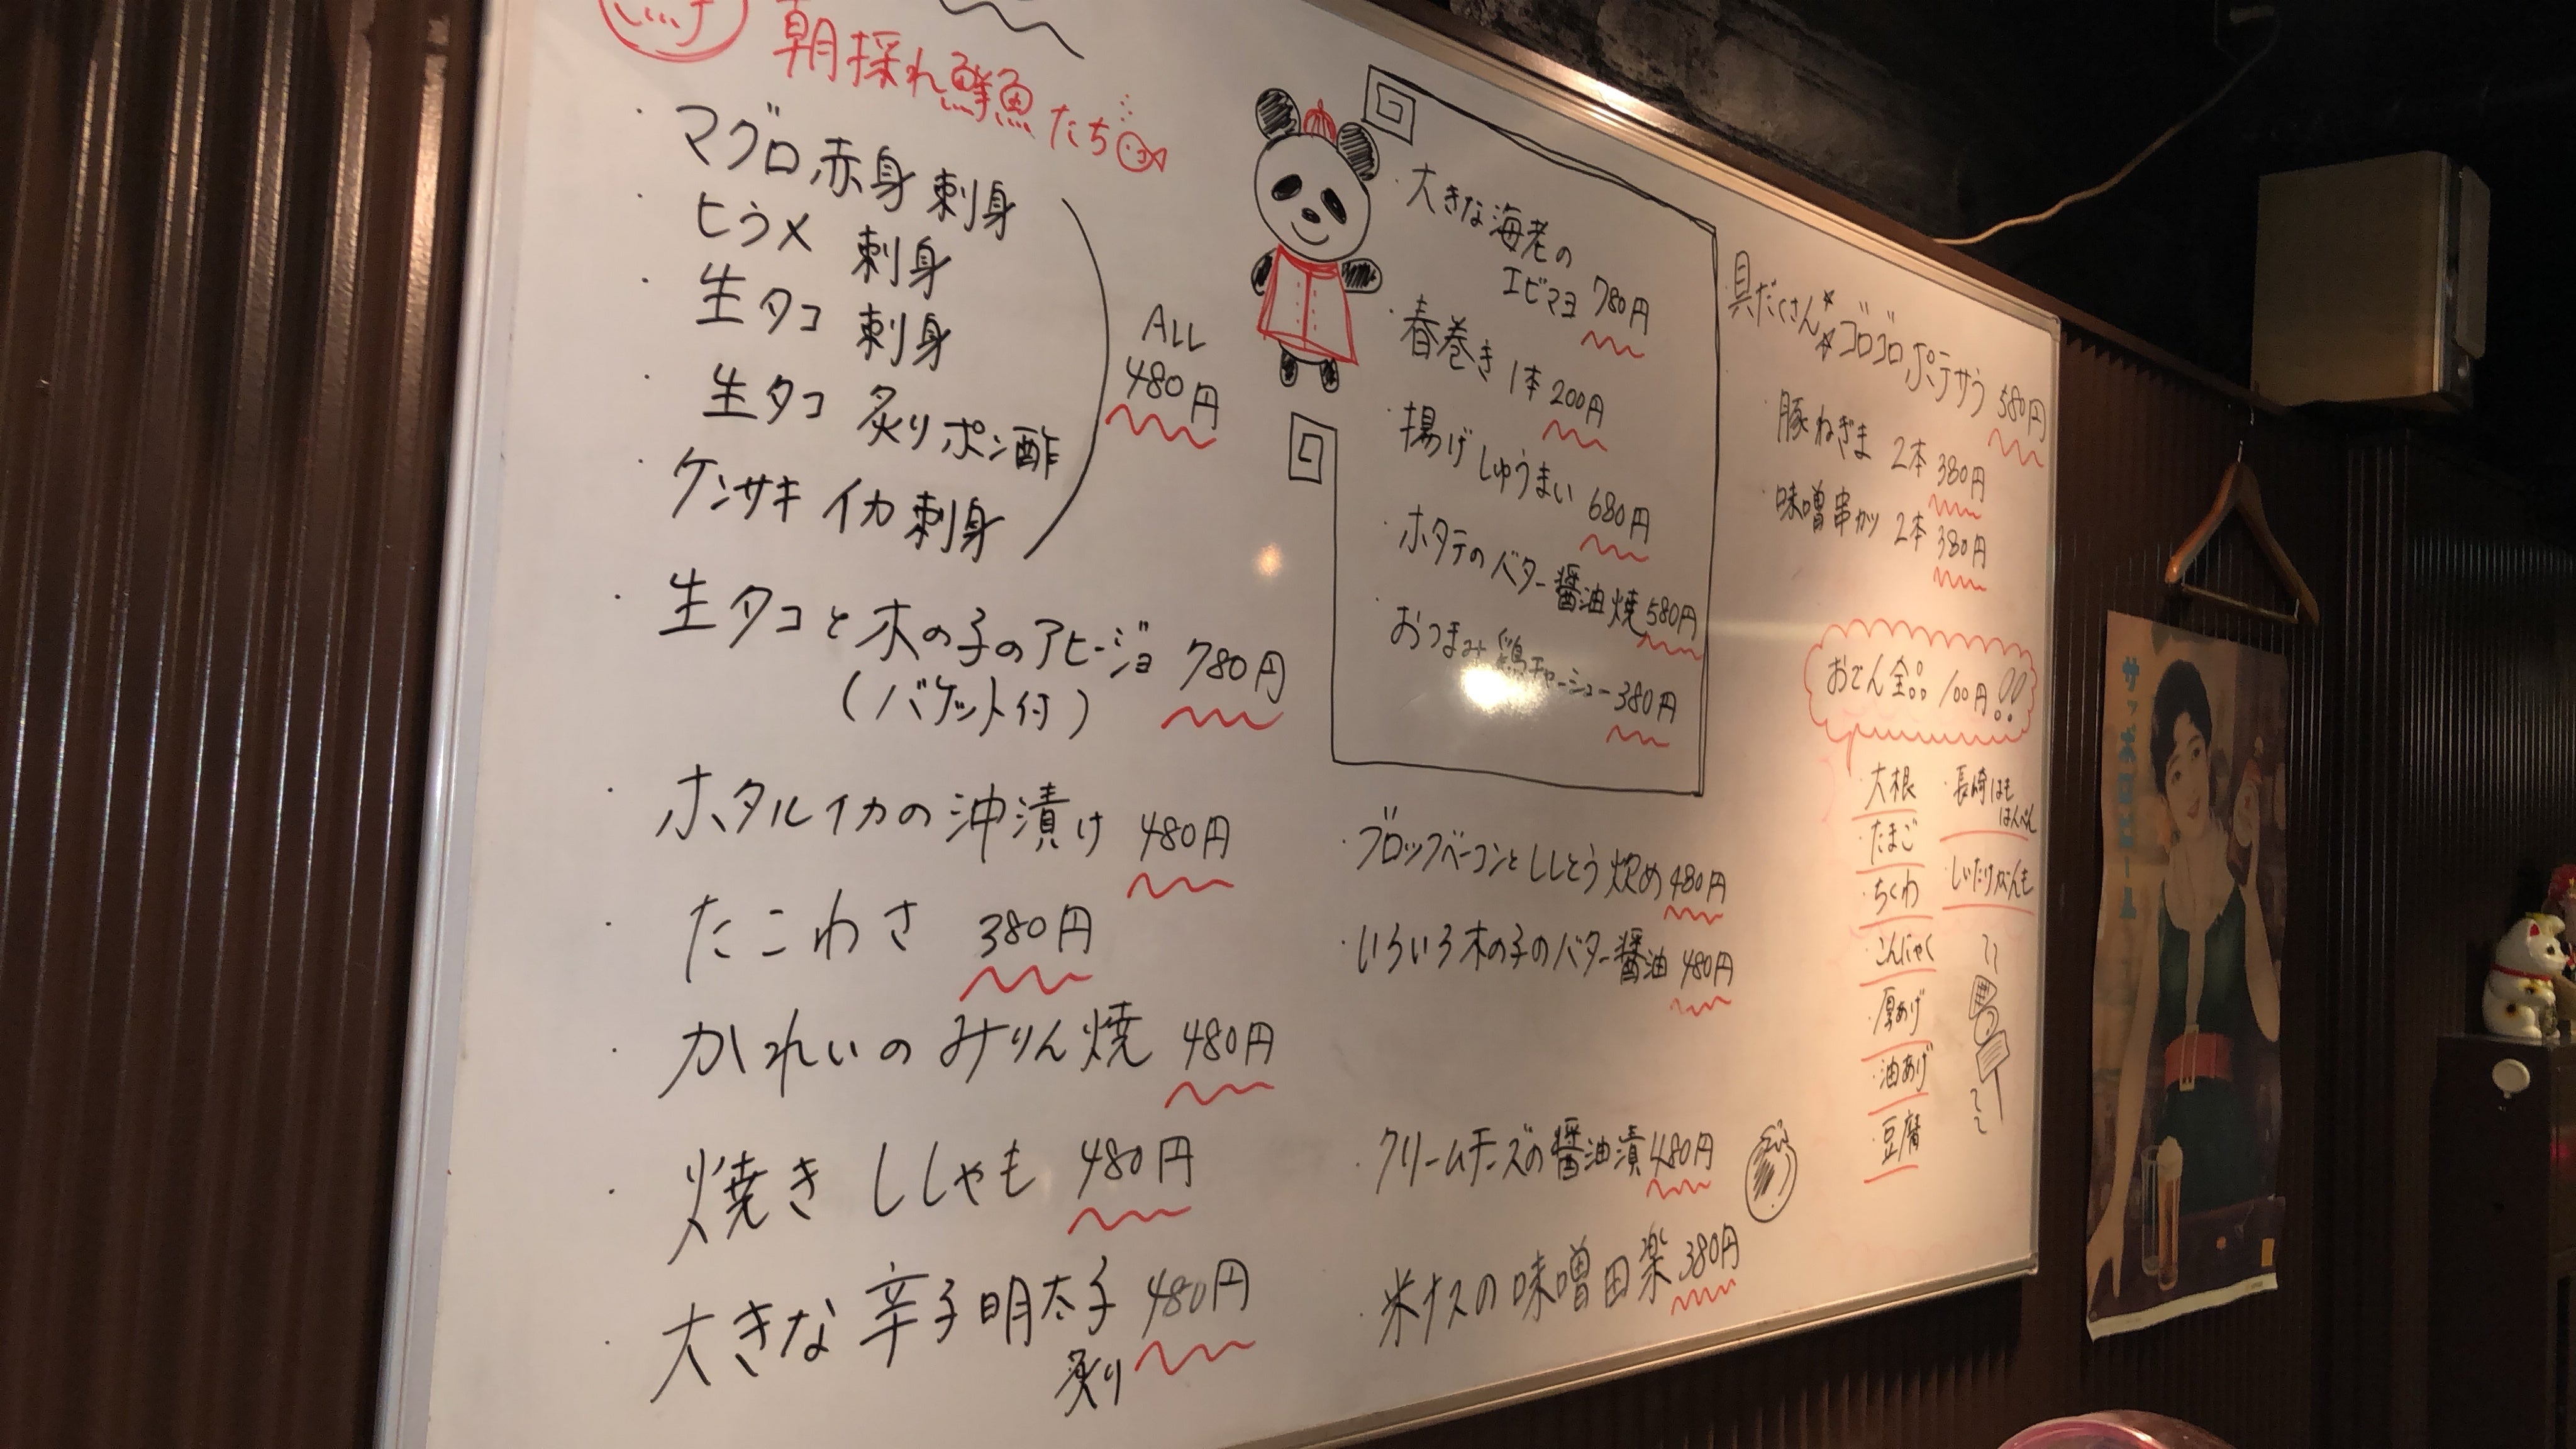 朝採れ鮮魚たち
・マグロ赤身 刺身
・ヒラメ 刺身
・生タコ 刺身
・生タコ 炙りポン酢
・ケンサキイカ刺身
ALL
480円
・生タコと木の子のアヒージョ 780円
(バケット付)
・ホタルイカの沖漬け 480円
・たこわさ 380円
・かれいのみりん焼 480円
・焼きししゃも 480円
・大きな辛子明太子 480円
炙り
・大きな海老の
エビマヨ 780円
・春巻き 1本 200円
・揚げしゅうまい 680円
・ホタテのバター醤油焼 580円
・おつまみ鶏チャーシュー 380円
・ブロックベーコンとししとう炒め 480円
・いろいろ木の子のバター醤油 480円
・クリームチーズの醤油漬 480円
・米ナスの味噌田楽 380円
・具だくさんゴロゴロポテサラ 580円
・豚ねぎま 2本 380円
・味噌串カツ 2本 380円
おでん全品100円!!
・大根
・たまご
・ちくわ
・こんにゃく
・厚あげ
・油あげ
・豆腐
・長崎はも
はんぺん
サッポロビール